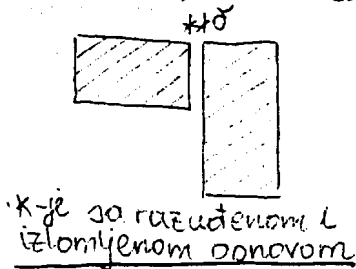 δ
K-je sa razuđenom i
izlomljenom osnovom